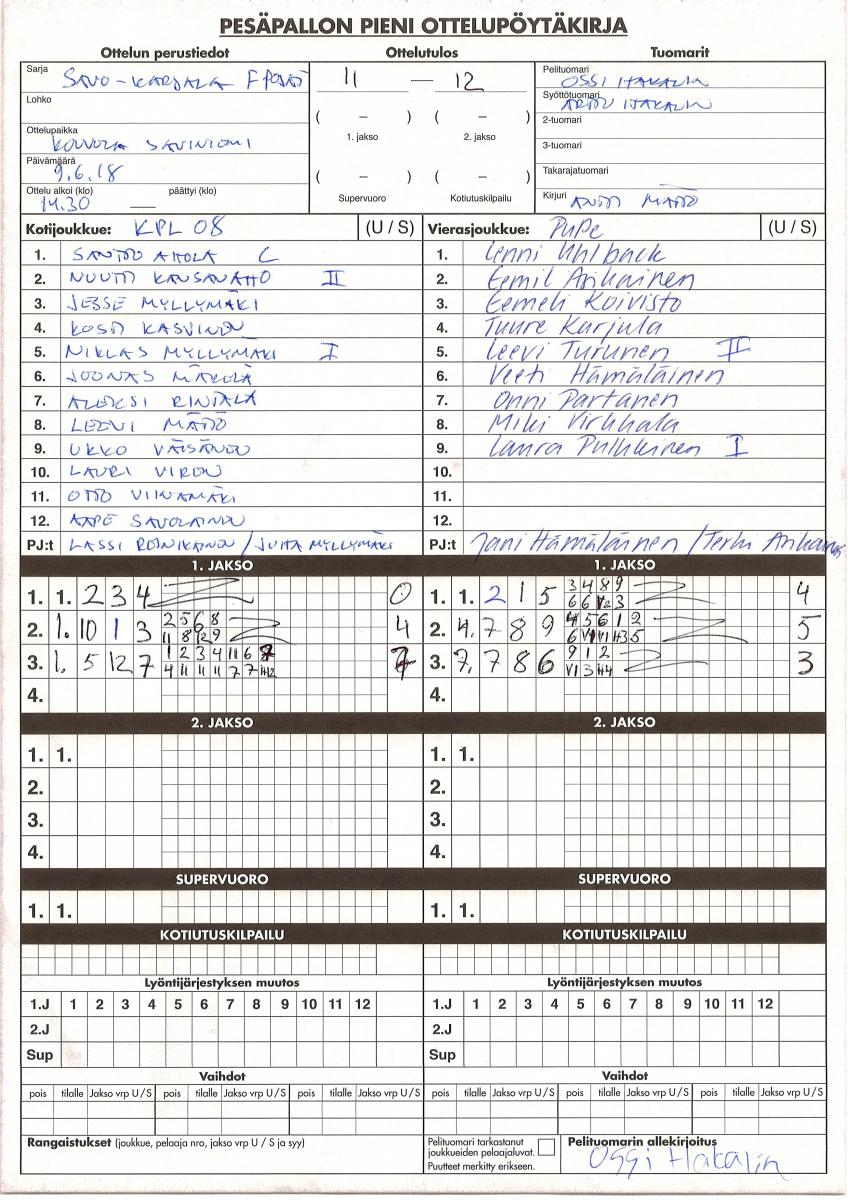 PESÄPALLON PIENI OTTELUPÖYTÄKIRJA
Ottelun perustiedot Ottelutulos Tuomarit
Sarja SAVO-KARJALA F POJAT
11 — 12
Pelituomari OSSI HAKALIN
Lohko
Syöttötuomari ARTTU HAKALIN
( – ) ( – )
2-tuomari
Ottelupaikka KOUVOLA SAVINIEMI
1. jakso 2. jakso
3-tuomari
Päivämäärä 9.6.18
( – ) ( – )
Takarajatuomari
Ottelu alkoi (klo) päättyi (klo)
14.30 —
Supervuoro Kotiutuskilpailu
Kirjuri ANTTI MÄTTÖ
Kotijoukkue: KPL 08 (U / S) Vierasjoukkue: PuPe (U / S)
1. SANTTU AHOLA C 1. Lenni Uhlbäck
2. NUUTTI KANSANAHO II 2. Eemil Asikainen
3. JESSE MYLLYMÄKI 3. Eemeli Koivisto
4. KOSTI KASVINEN 4. Tuure Karjula
5. NIKLAS MYLLYMÄKI I 5. Leevi Turunen II
6. JOONAS MÄKELÄ 6. Veeti Hämäläinen
7. ALEKSI RINTALA 7. Onni Partanen
8. LEEVI MÄTTÖ 8. Miki Virkkala
9. UKKO VÄISÄNEN 9. Laura Pulkkinen I
10. LAURI VIREN 10.
11. OTTO VIINAMÄKI 11.
12. AAPE SAVOLAINEN 12.
PJ:t LASSI ROINIKAINEN / JUHA MYLLYMÄKI PJ:t Jani Hämäläinen / Terhi Asikainen
1. JAKSO 1. JAKSO
1. 1. 2 3 4 0 1. 1. 2 1 5 3 4 8 9 4
6 6 3
2. 1. 10 1 3 2 5 6 8 4 2. 4. 7 8 9 4 5 6 1 2 5
11 8 9
3. 1. 5 12 7 1 2 3 4 11 6 7 3. 7. 7 8 6 9 1 2 3
4 11 11 11 7 7 V1 3 H4
4. 4.
2. JAKSO 2. JAKSO
1. 1. 1. 1.
2. 2.
3. 3.
4. 4.
SUPERVUORO SUPERVUORO
1. 1. 1. 1.
KOTIUTUSKILPAILU KOTIUTUSKILPAILU
Lyöntijärjestyksen muutos Lyöntijärjestyksen muutos
1.J 1 2 3 4 5 6 7 8 9 10 11 12 1.J 1 2 3 4 5 6 7 8 9 10 11 12
2.J 2.J
Sup Sup
Vaihdot Vaihdot
pois tilalle Jakso vrp U / S pois tilalle Jakso vrp U / S pois tilalle Jakso vrp U / S pois tilalle Jakso vrp U / S pois tilalle Jakso vrp U / S pois tilalle Jakso vrp U / S
Rangaistukset (joukkue, pelaaja nro, jakso vrp U / S ja syy)
Pelituomari tarkastanut
joukkueiden pelaajaluvat.
Puutteet merkitty erikseen.
Pelituomarin allekirjoitus
Ossi Hakalin